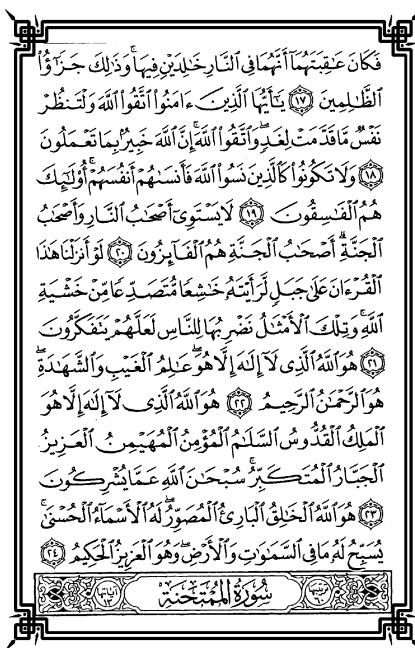 فَكَانَ عَٰقِبَتَهُمَآ أَنَّهُمَا فِى ٱلنَّارِ خَٰلِدَيْنِ فِيهَا ۚ وَذَٰلِكَ جَزَٰٓؤُا۟
ٱلظَّٰلِمِينَ ١٧ يَٰٓأَيُّهَا ٱلَّذِينَ ءَامَنُوا۟ ٱتَّقُوا۟ ٱللَّهَ وَلْتَنظُرْ
نَفْسٌ مَّا قَدَّمَتْ لِغَدٍ ۖ وَٱتَّقُوا۟ ٱللَّهَ ۚ إِنَّ ٱللَّهَ خَبِيرٌۢ بِمَا تَعْمَلُونَ
١٨ وَلَا تَكُونُوا۟ كَٱلَّذِينَ نَسُوا۟ ٱللَّهَ فَأَنسَىٰهُمْ أَنفُسَهُمْ ۚ أُو۟لَٰٓئِكَ
هُمُ ٱلْفَٰسِقُونَ ١٩ لَا يَسْتَوِىٓ أَصْحَٰبُ ٱلنَّارِ وَأَصْحَٰبُ
ٱلْجَنَّةِ ۚ أَصْحَٰبُ ٱلْجَنَّةِ هُمُ ٱلْفَآئِزُونَ ٢٠ لَوْ أَنزَلْنَا هَٰذَا
ٱلْقُرْءَانَ عَلَىٰ جَبَلٍ لَّرَأَيْتَهُۥ خَٰشِعًا مُّتَصَدِّعًا مِّنْ خَشْيَةِ
ٱللَّهِ ۚ وَتِلْكَ ٱلْأَمْثَٰلُ نَضْرِبُهَا لِلنَّاسِ لَعَلَّهُمْ يَتَفَكَّرُونَ
٢١ هُوَ ٱللَّهُ ٱلَّذِى لَآ إِلَٰهَ إِلَّا هُوَ ۖ عَٰلِمُ ٱلْغَيْبِ وَٱلشَّهَٰدَةِ ۖ
هُوَ ٱلرَّحْمَٰنُ ٱلرَّحِيمُ ٢٢ هُوَ ٱللَّهُ ٱلَّذِى لَآ إِلَٰهَ إِلَّا هُوَ
ٱلْمَلِكُ ٱلْقُدُّوسُ ٱلسَّلَٰمُ ٱلْمُؤْمِنُ ٱلْمُهَيْمِنُ ٱلْعَزِيزُ
ٱلْجَبَّارُ ٱلْمُتَكَبِّرُ ۚ سُبْحَٰنَ ٱللَّهِ عَمَّا يُشْرِكُونَ
٢٣ هُوَ ٱللَّهُ ٱلْخَٰلِقُ ٱلْبَارِئُ ٱلْمُصَوِّرُ ۖ لَهُ ٱلْأَسْمَآءُ ٱلْحُسْنَىٰ ۚ
يُسَبِّحُ لَهُۥ مَا فِى ٱلسَّمَٰوَٰتِ وَٱلْأَرْضِ ۖ وَهُوَ ٱلْعَزِيزُ ٱلْحَكِيمُ ٢٤
ترتيبها ٦٠ سُورَةُ ٱلْمُمْتَحنَة آياتها ١٣